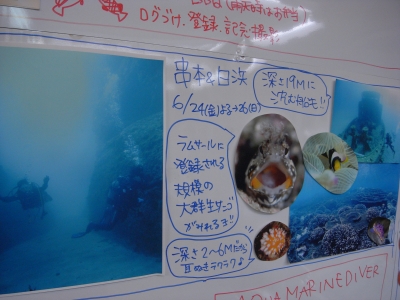 ログづけ、登録、記念撮影
串本&白浜
6/24(金)よる〜26(日)
深さ19Mに
沈む船も!!
ラムサールに
登録される
規模の
大群生サンゴ
がみれるヨ!!
深さ2〜6Mだから
耳ぬきラクラク♪
AQUA MARINE DIVER